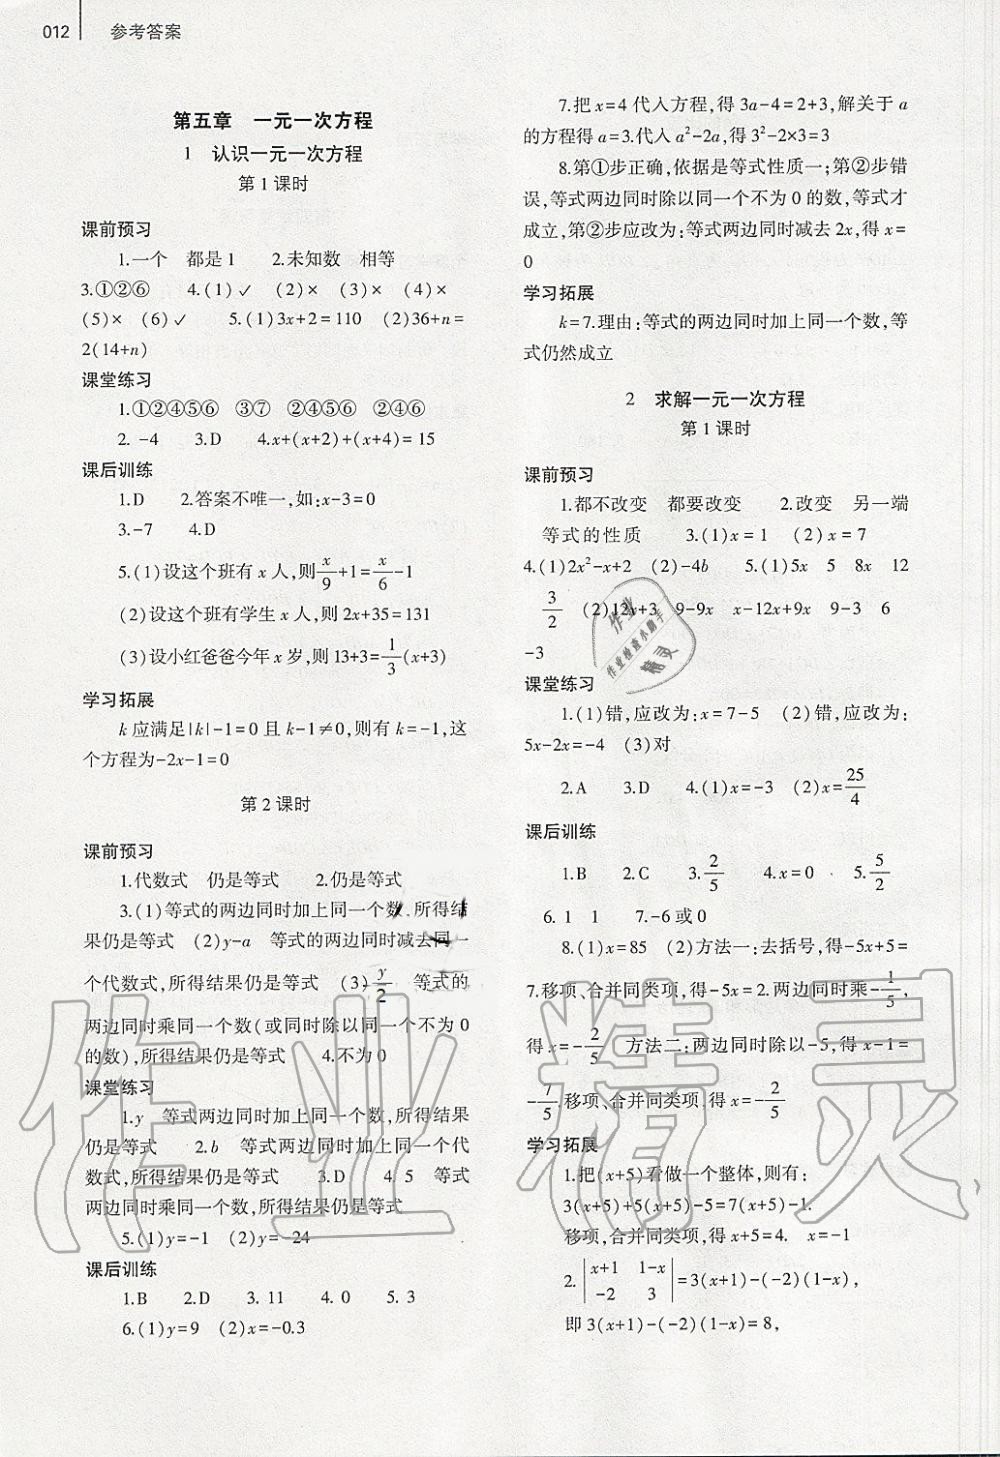 012 参考答案
第五章 一元一次方程
1 认识一元一次方程
第1课时
课前预习
1.一个 都是1 2.未知数 相等
3.①②⑥ 4.(1)✓ (2)× (3)× (4)×
(5)× (6)✓ 5.(1)3x+2=110 (2)36+n=
2(14+n)
课堂练习
1.①②④⑤⑥ ③⑦ ②④⑤⑥ ②④⑥
2. -4 3.D 4.x+(x+2)+(x+4)=15
课后训练
1.D 2.答案不唯一,如:x-3=0
3.-7 4.D
5.(1)设这个班有x人,则x/9+1=x/6-1
(2)设这个班有学生x人,则2x+35=131
(3)设小红爸爸今年x岁,则13+3=1/3(x+3)
学习拓展
k应满足|k|-1=0且k-1≠0,则有k=-1,这
个方程为-2x-1=0
第2课时
课前预习
1.代数式 仍是等式 2.仍是等式
3.(1)等式的两边同时加上同一个数,所得结
果仍是等式 (2)y-a 等式的两边同时减去同一
个代数式,所得结果仍是等式 (3)-y/2 等式的
两边同时乘同一个数(或同时除以同一个不为0
的数),所得结果仍是等式 4.不为0
课堂练习
1.y 等式两边同时加上同一个数,所得结果
仍是等式 2.b 等式两边同时加上同一个代
数式,所得结果仍是等式 3.D 4. 5 等式
两边同时乘同一个数,所得结果仍是等式
5.(1)y=-1 (2)y=-24
课后训练
1.B 2.D 3. 11 4. 0 5. 3
6.(1)y=9 (2)x=-0.3
7.把x=4代入方程,得3a-4=2+3,解关于a
的方程得a=3.代入a²-2a,得3²-2×3=3
8.第①步正确,依据是等式性质一;第②步错
误,等式两边同时除以同一个不为0的数,等式才
成立,第②步应改为:等式两边同时减去2x,得x=
0
学习拓展
k=7.理由:等式的两边同时加上同一个数,等
式仍然成立
2 求解一元一次方程
第1课时
课前预习
1.都不改变 都要改变 2.改变 另一端
等式的性质 3.(1)x=1 (2)x=7
4.(1)2x²-x+2 (2)-4b 5.(1)5x 5 8x 12
3/2 (2)12x+3 9-9x x-12x+9x 9-3 6
-3
课堂练习
1.(1)错,应改为:x=7-5 (2)错,应改为:
5x-2x=-4 (3)对
2.A 3.D 4.(1)x=-3 (2)x=25/4
课后训练
1.B 2.C 3.2/5 4.x=0 5.5/2
6. 1 1 7.-6或0
8.(1)x=85 (2)方法一:去括号,得-5x+5=
7.移项、合并同类项,得-5x=2.两边同时乘-1/5,
得x=-2/5 方法二:两边同时除以-5,得x-1=
-7/5.移项、合并同类项,得x=-2/5
学习拓展
1.把(x+5)看做一个整体,则有:
3(x+5)+5(x+5)-5=7(x+5)-1.
移项,合并同类项,得x+5=4. x=-1
2.|x+1 1-x
-2 3|=3(x+1)-(-2)(1-x),
即3(x+1)-(-2)(1-x)=8,
作业精灵
作业
作业检查小助手
精灵